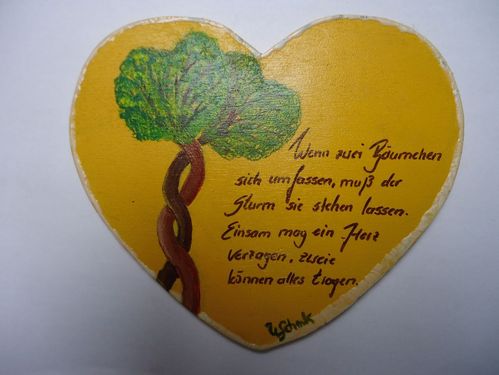 Wenn zwei Bäumchen
sich umfassen, muß der
Sturm sie stehen lassen.
Einsam mag ein Herz
verzagen, zweie
können alles tragen.